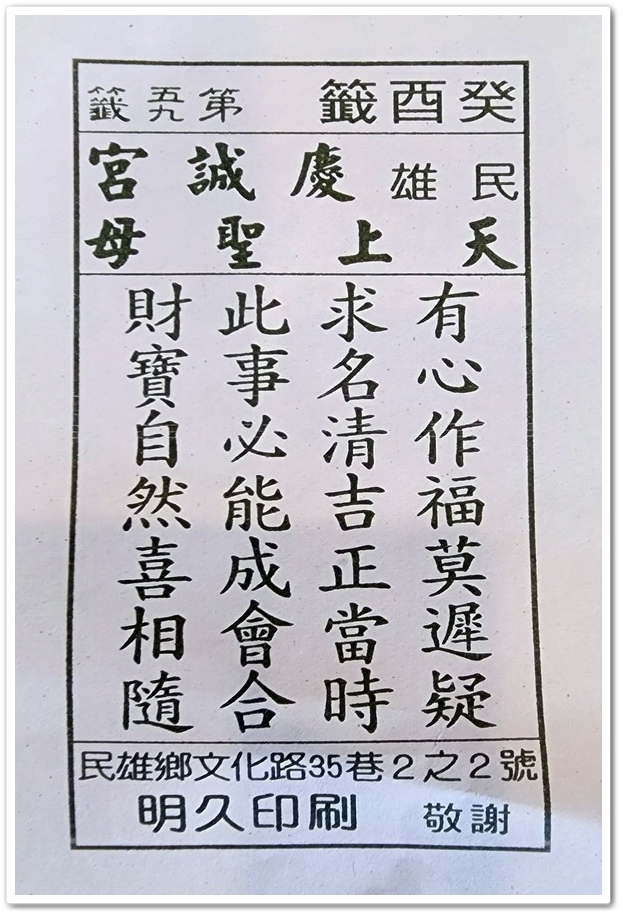 癸酉籤 第五九籤
民雄慶誠宮
天上聖母
有心作福莫遲疑
求名清吉正當時
此事必能成會合
財寶自然喜相隨
民雄鄉文化路35巷2之2號
明久印刷 敬謝